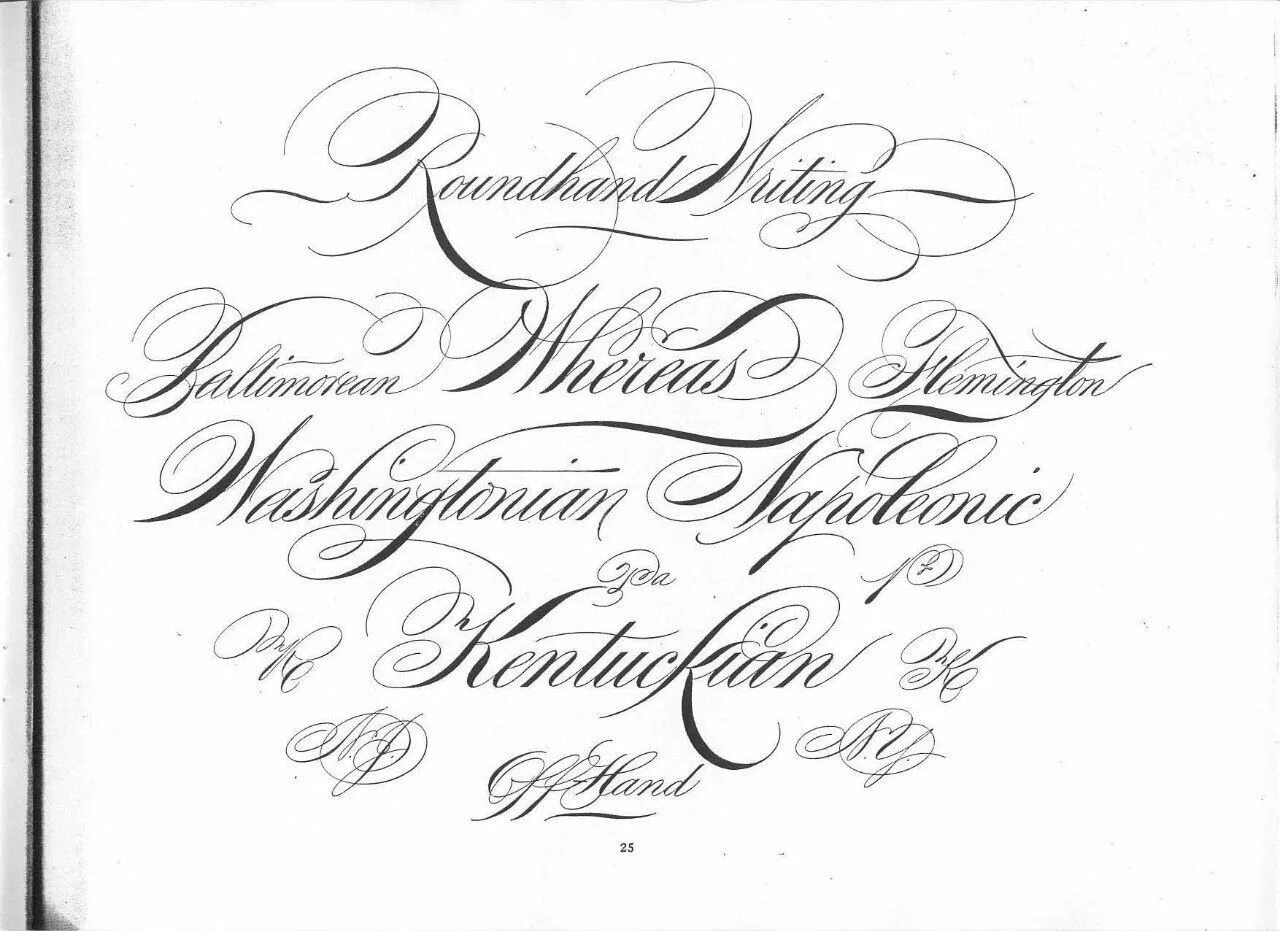 Roundhand Writing
Baltimorean Whereas Flemington
Washingtonian Napoleonic
Kentuckian
N.J. N.Y.
Off-Hand
25